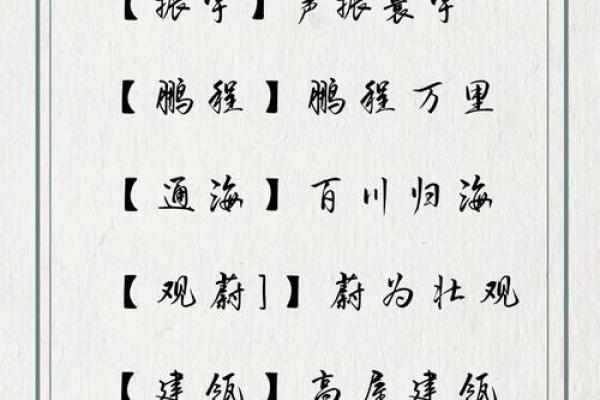 【振宇】声振寰宇
【鹏程】鹏程万里
【通海】百川归海
【观蔚]】蔚为壮观
【建瓴】高屋建瓴